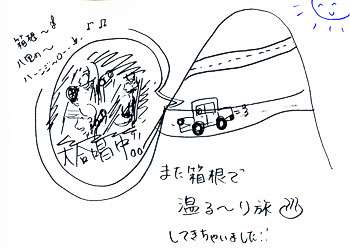 箱根～の
八里の～
ハ～ンジ～ロ…
大合唱中!!
また箱根で
温る～り旅
してきちゃいました!!